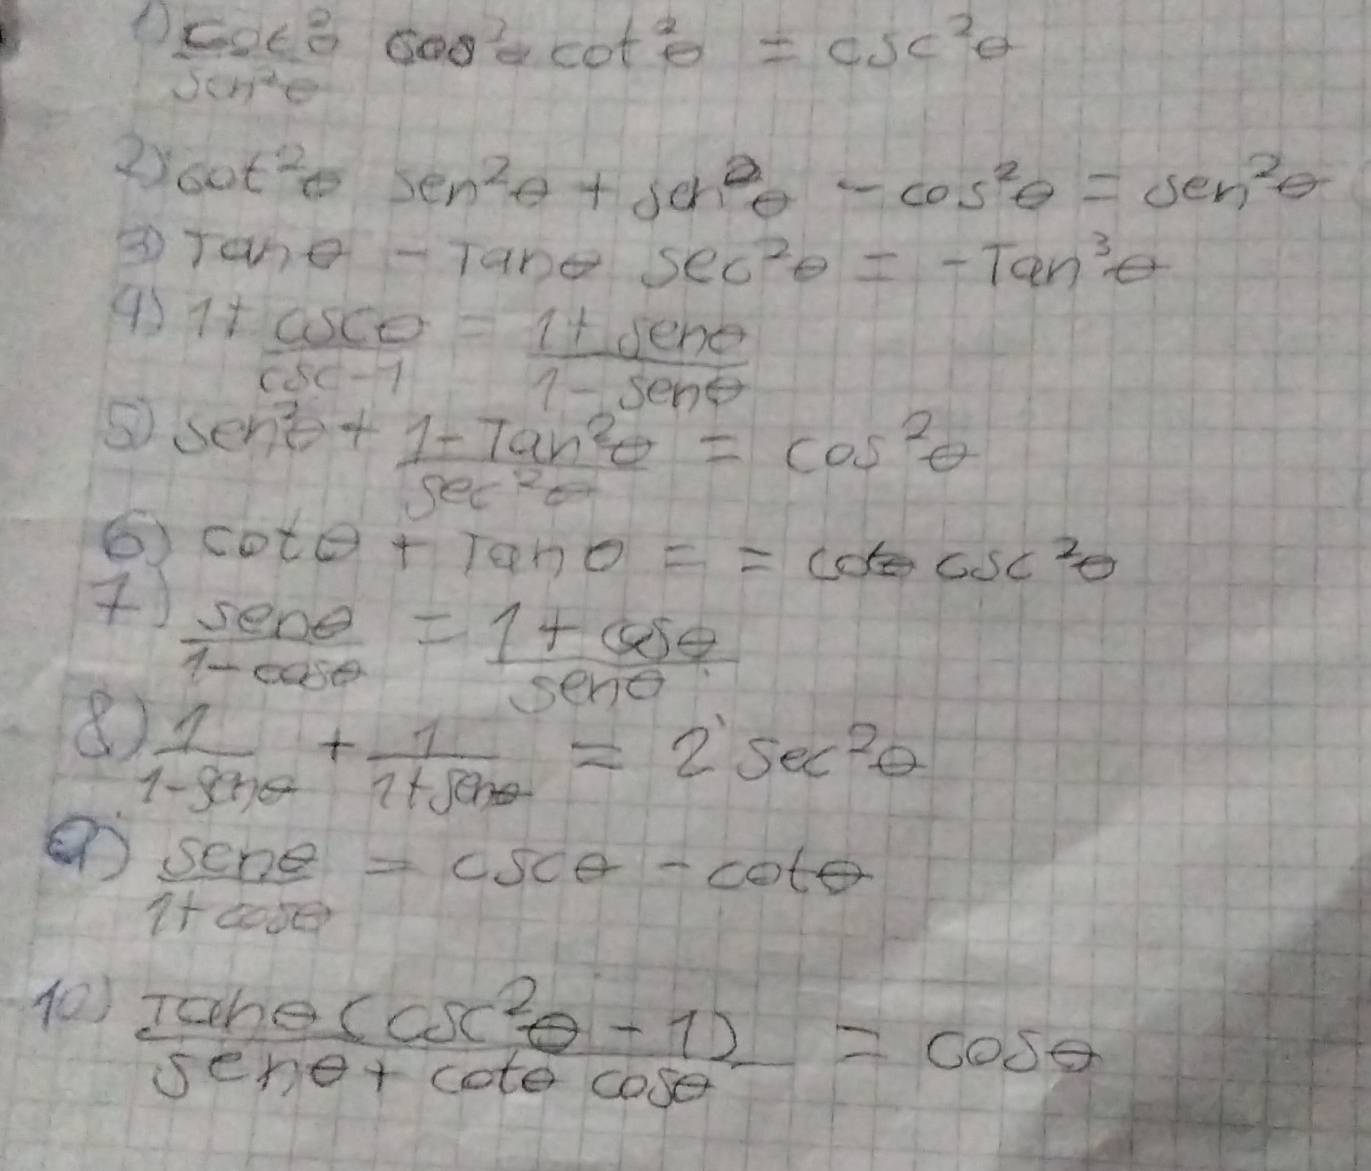 1) cot²θ/sen²θ cos²θ cot²θ = csc²θ
2) cot²θ sen²θ + sen²θ - cos²θ = sen²θ
3) Tanθ - Tanθ sec²θ = -Tan³θ
4) 1+ cscθ/csc-1 = 1+senθ/1-senθ
5) sen²θ + 1-Tan²θ/sec²θ = cos²θ
6) cotθ + Tanθ = = cotθ csc²θ
7) senθ/1-cosθ = 1+cosθ/senθ
8) 1/1-senθ + 1/1+senθ = 2 sec²θ
9) senθ/1+cosθ = cscθ - cotθ
10) Tanθ(csc²θ-1)/senθ+cotθ cosθ = cosθ